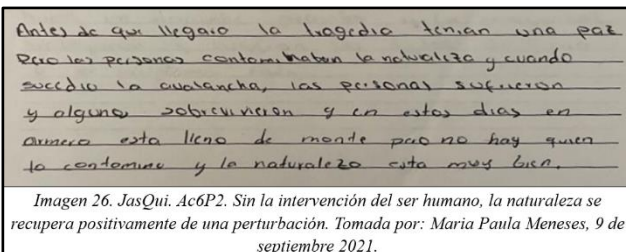 Antes de que llegara la tragedia tenian una paz
Pero las personas contaminaban la naturaleza y cuando
sucedio la avalancha, las personas sufrieron
y algunas sobrevivieron y en estos dias en
armero esta lleno de monte pero no hay quien
la contamine y la naturaleza esta muy bien.
Imagen 26. JasQui. Ac6P2. Sin la intervención del ser humano, la naturaleza se
recupera positivamente de una perturbación. Tomada por: Maria Paula Meneses, 9 de
septiembre 2021.